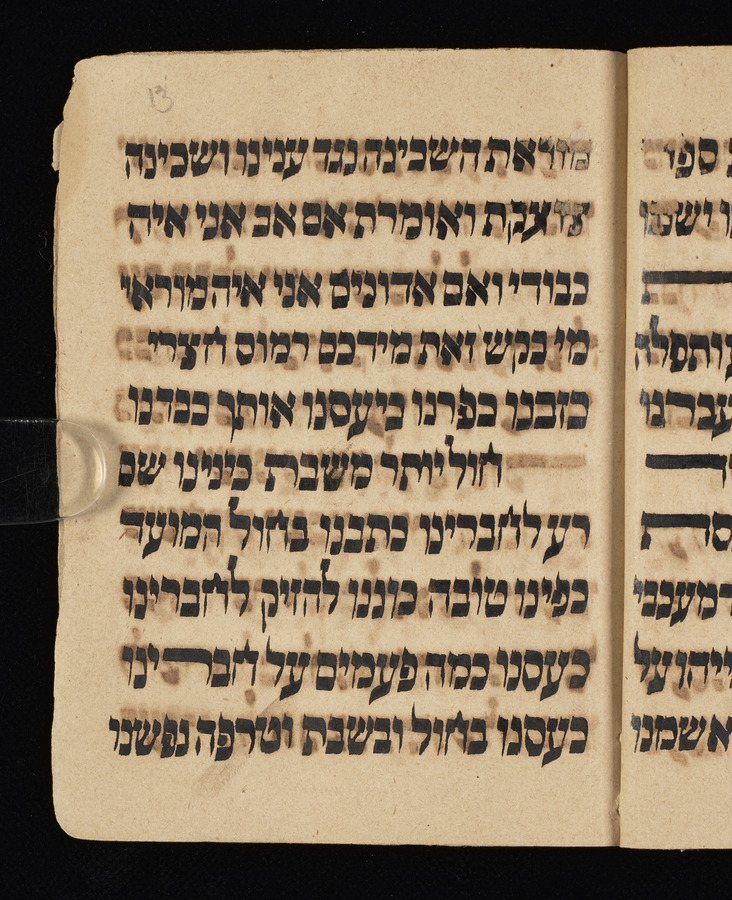 13
מוראת השכינה נגד ענינו ושכינה
צועקת ואומרת אם אב אני איה
כבודי ואם אדונים אני איה מוראי
מי בקש זאת מידכם רמוס חצרי
כזבנו כפרנו כיעסנו אותך כבדנו
חול יותר משבת כינינו שם
רע לחברינו כתבנו בחול המועד
כפינו טובה כוננו להזיק לחברינו
כעסנו כמה פעמים על חברינו
כעסנו בחול ובשבת וטרפה נפשנו